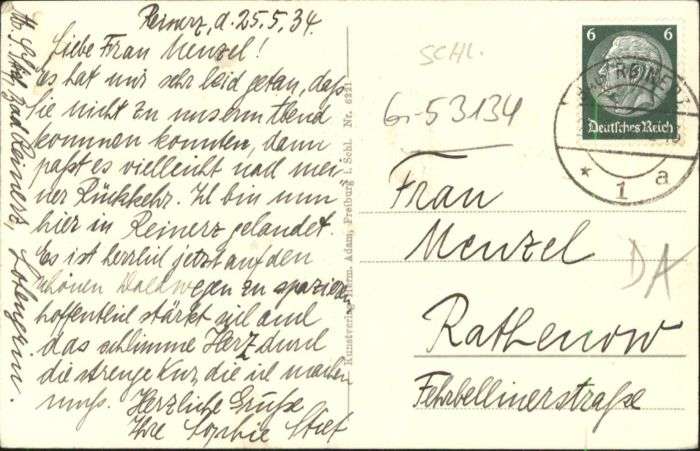 Reinerz, d. 25.5.34.
Liebe Frau Menzel!
Es hat mir sehr leid getan, daß
Sie nicht zu unserm Abend
kommen konnten, dann
paßt es vielleicht nach mei-
ner Rückkehr. Ich bin nun
hier in Reinerz gelandet
Es ist herrlich jetzt auf den
schönen Waldwegen zu spazieren
hoffentlich stärkt sich auch
das schlimme Herz durch
die strenge Kur, die ich machen
muß. Herzliche Grüße
Ihre Sophie
Bad Reinerz, Lohengrin.
Kunstverlag Herm. Adam, Freiburg i. Schl. Nr. 6221
SCHL.
G-53134
6 6
Deutsches Reich
* 1 a
Frau
Menzel
DA
Rathenow
Fehrbellinerstraße